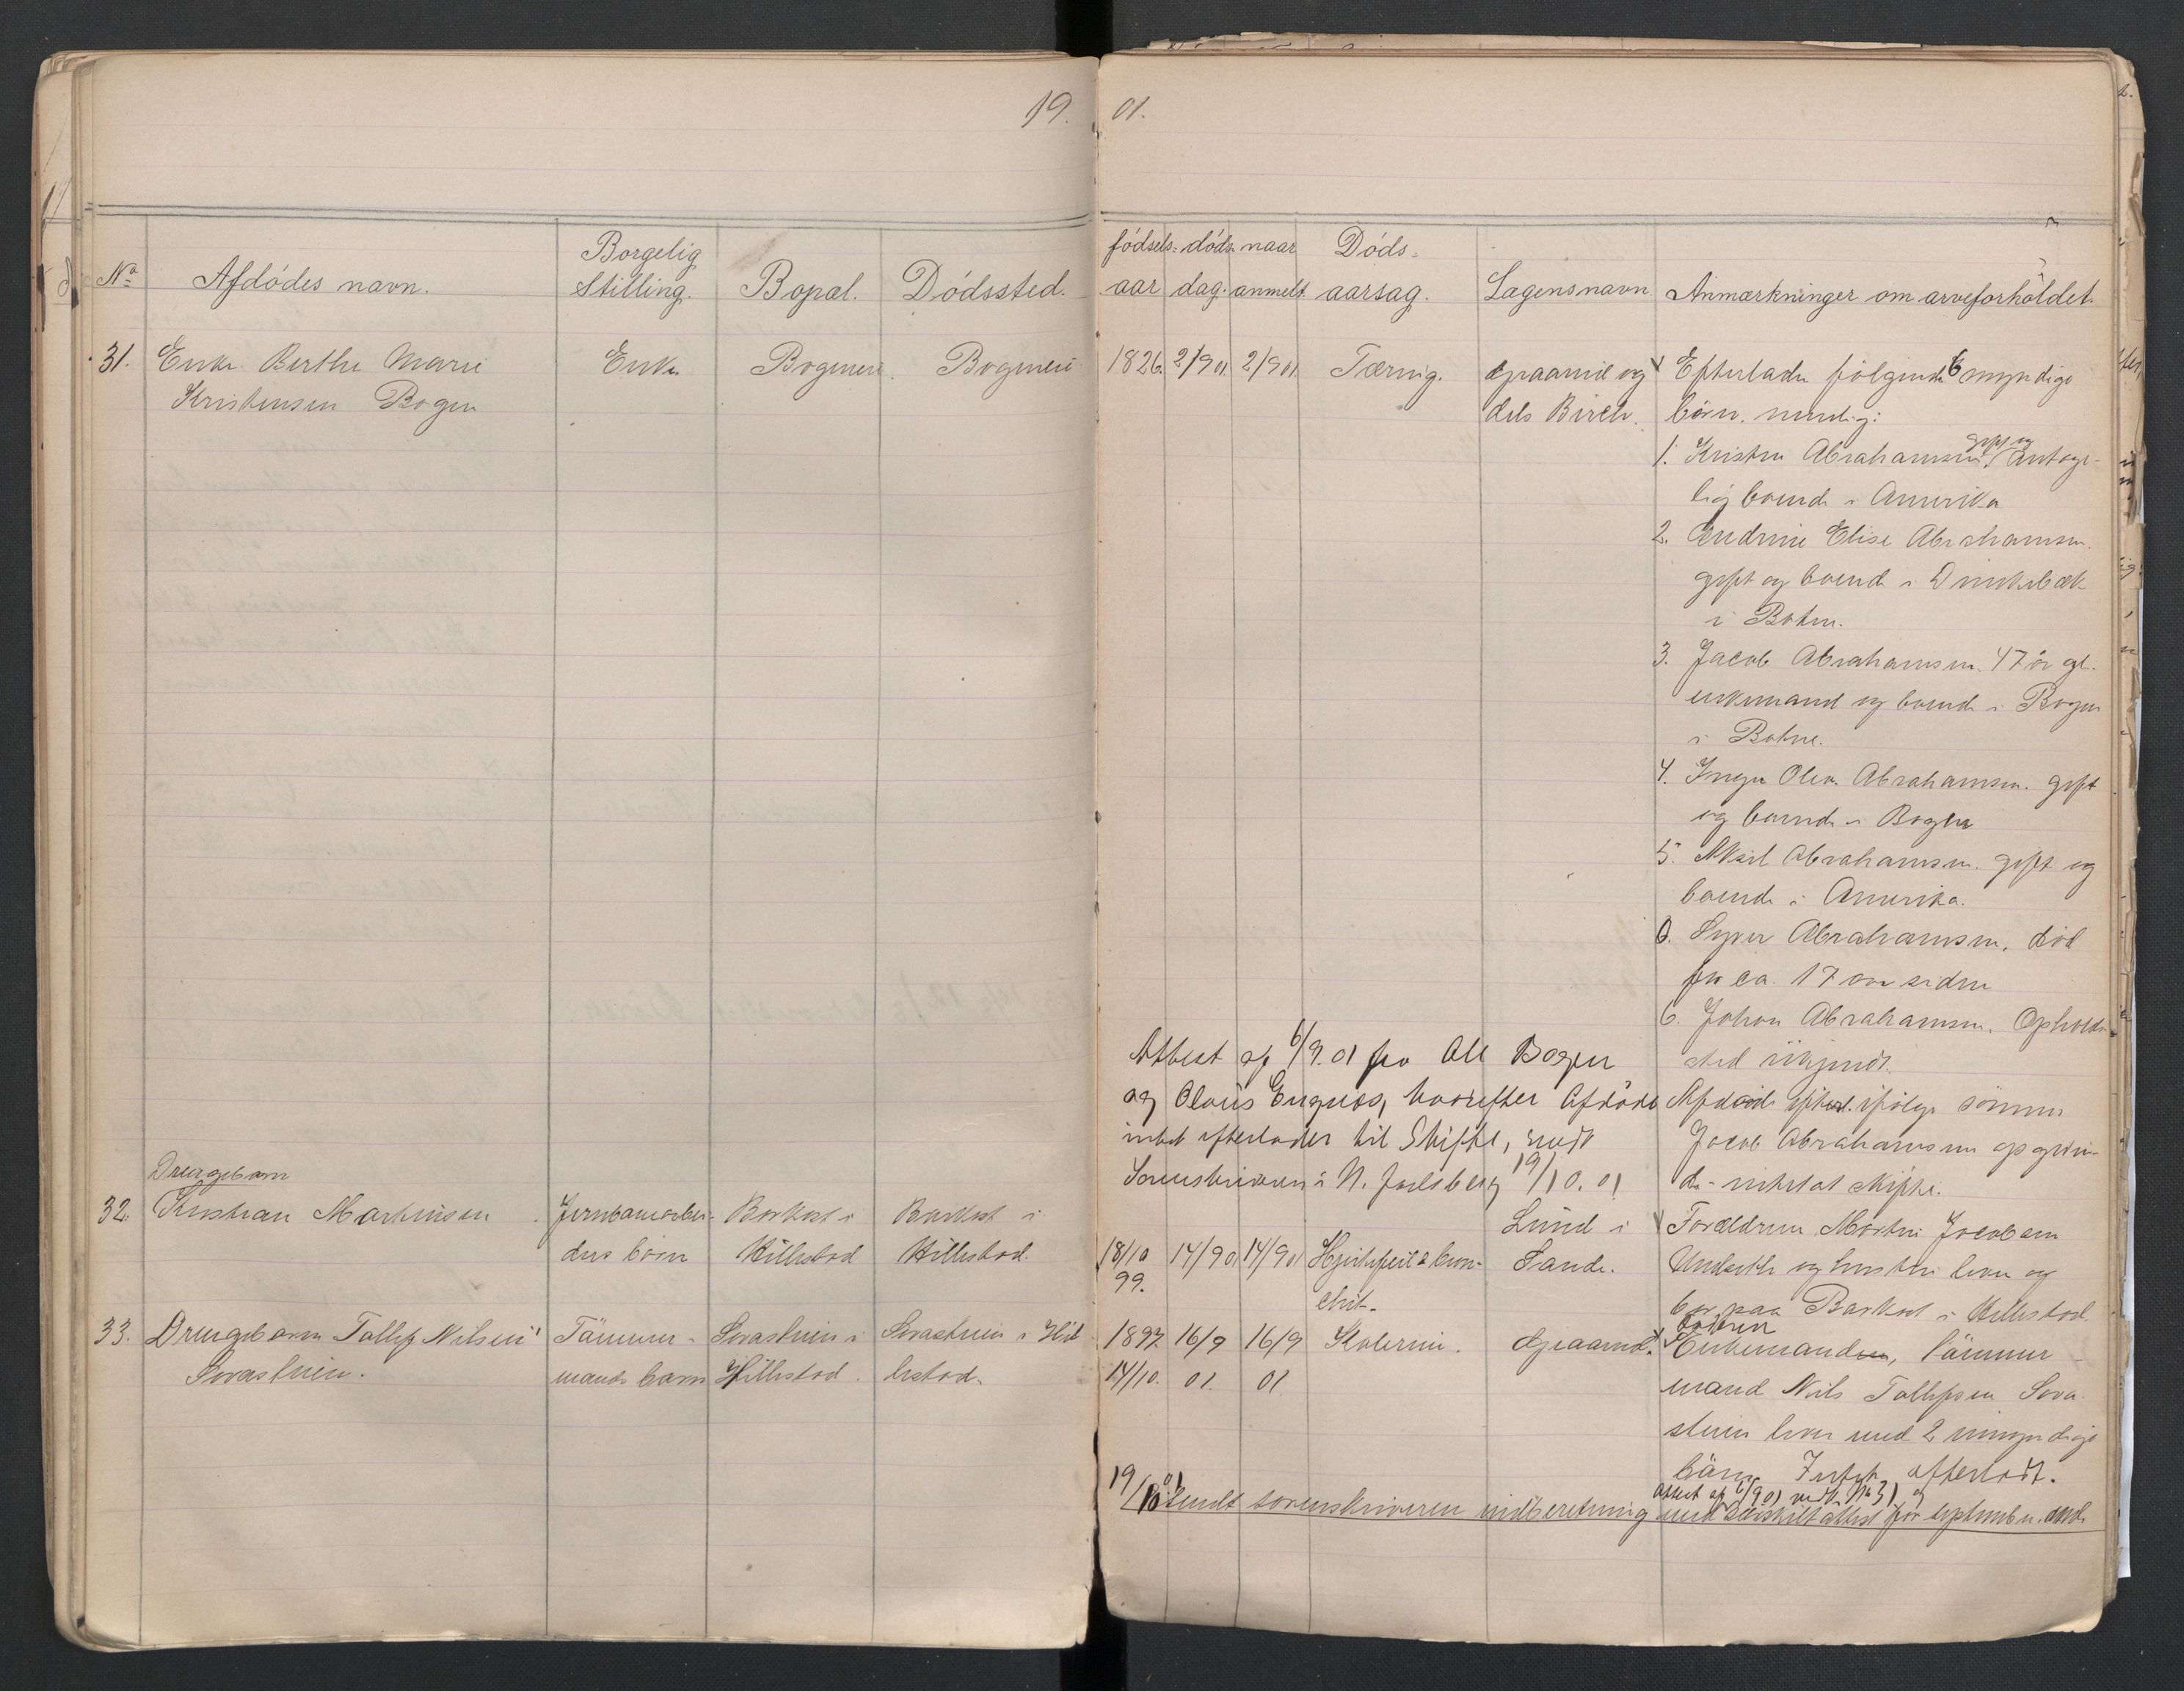 19. 01.
No Afdødes navn. Borgelig Stilling. Bopæl. Dødssted. fødsels-aar døds-dag. naar anmelt. Døds-aarsag. Lægens navn Anmærkninger om arveforholdet.
31. Enke Berthe Marie Enke Bogen Bogen 1826. 2/9 01. 2/9 01. Tæring. Graarud og Efterlader følgende 6 myndige
Kristensen Bogen dels Birch. børn. nemlig:
1. Kristen Abrahamsen, gift og antage-
lig boende i Amerika
2. Andrine Elise Abrahamsen.
gift og boende i
i Botne.
3. Jacob Abrahamsen. 47 år gl.
enkemand og boende i Bogen
i Botne.
4. Inger Olea Abrahamsen. gift
og boende i Bogen
5. Aksel Abrahamsen. gift og
boende i Amerika.
0. Syver Abrahamsen, død
for ca. 17 aar siden
6. Johan Abrahamsen. Opholds-
sted ukjendt.
Attest af 6/9. 01 fra Ole Bogen
og Olaus Engnes, hvorefter Afdøde
intet efterlader til Skifte, sendt
Sorenskriveren i N. Jarlsberg 19/10. 01
Afdøde ifølge sønnen
Jacob Abrahamsen opgivende
intet at skifte.
Drengebarn
32. Kristian Martinsen Jernbanearbei- Barkost i Barkost i Lund i Forældrene Martin Jacobsen
ders barn Hillestad Hillestad. 18/10 99. 14/9 01 14/9 01 Hjertefeil & bron- Sande. og hustru lever og
chit. bor paa Barkost i Hillestad.
33. Drengebarn Tollef Nilsen Tømmer- Svarstein i Svarstein i Hil- 1897. 16/9 16/9 Kolerine. Graarud. Enkemanden, tømmer-
Svarstein. mands barn Hillestad. lestad. 14/10. 01. 01 mand Nils Tollefsen Svar-
stein lever med 2 umyndige
børn. Intet efterladt.
attest af 6/9 01 vedk. No 31 og
19/10 01 Sendt sorenskriveren indberetning med attest for september md.